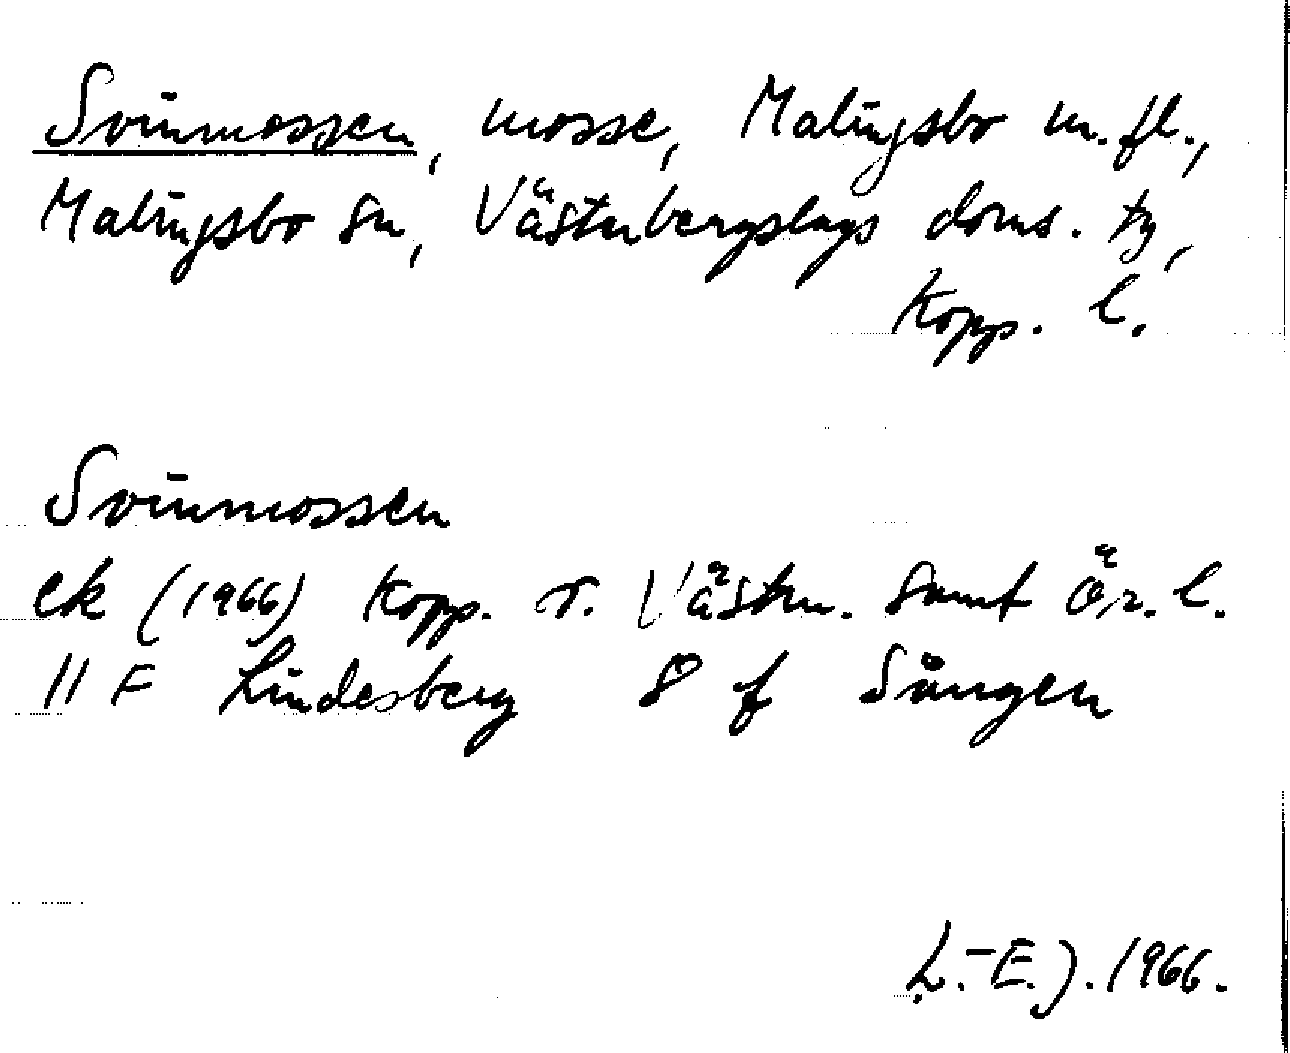 Svinmossen, mosse, Malingsbo m.fl.,
Malingsbo sn, Västerbergslags doms. tg,
Kopp. l.
Svinmossen
ek (1966) Kopp. o. Västm. samt Ör. l.
11 F Lindesberg 8 f Sången
L.-E.J. 1966.